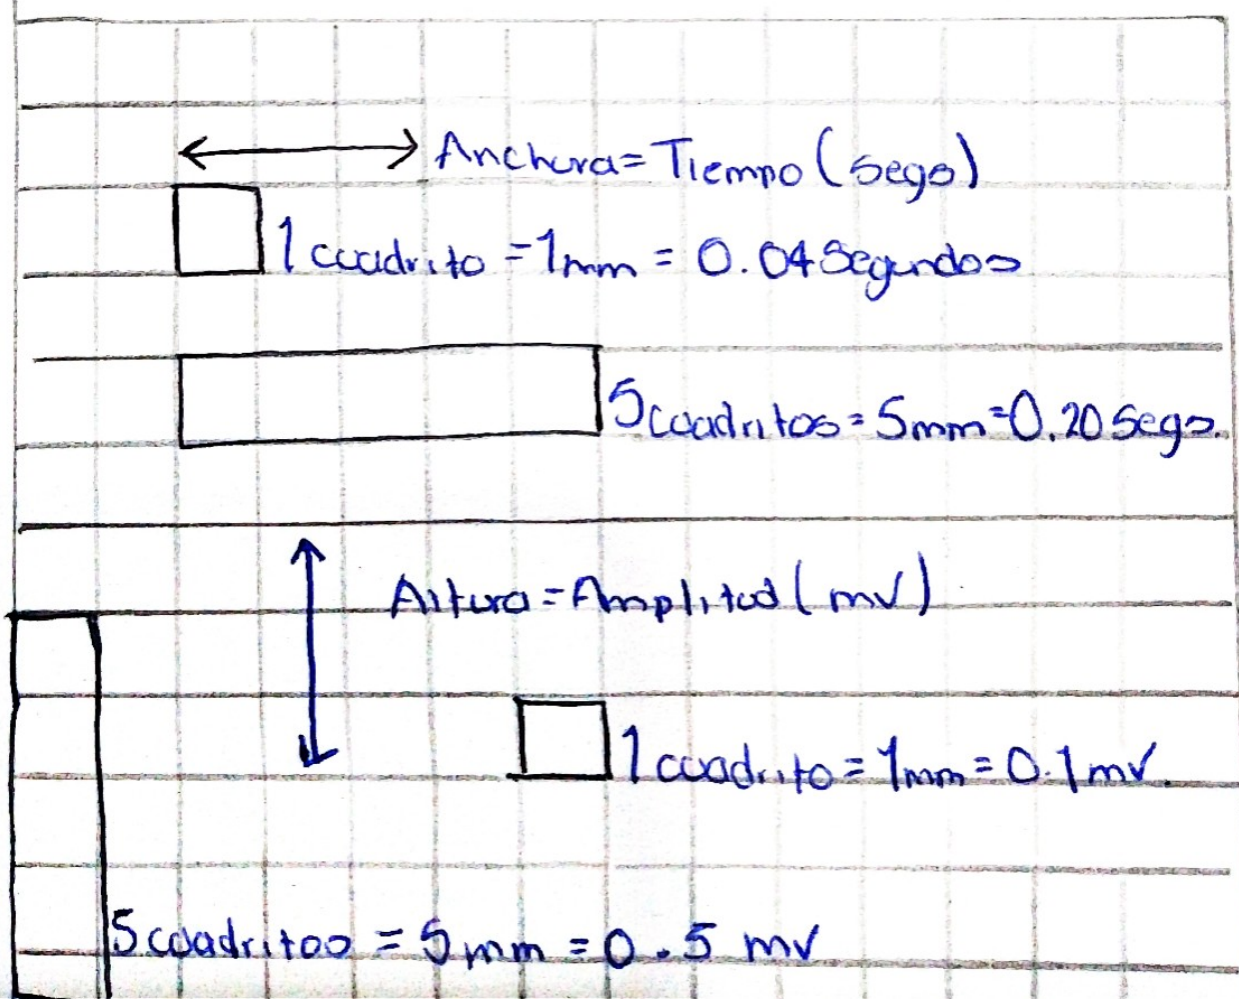 Anchura=Tiempo(segs)
1 cuadrito =1mm = 0.04 Segundos
5 cuadritos = 5mm=0.20 Segs.
Altura=Amplitud(mv)
1 cuadrito = 1mm = 0.1mv.
5 cuadritos = 5mm = 0.5 mv